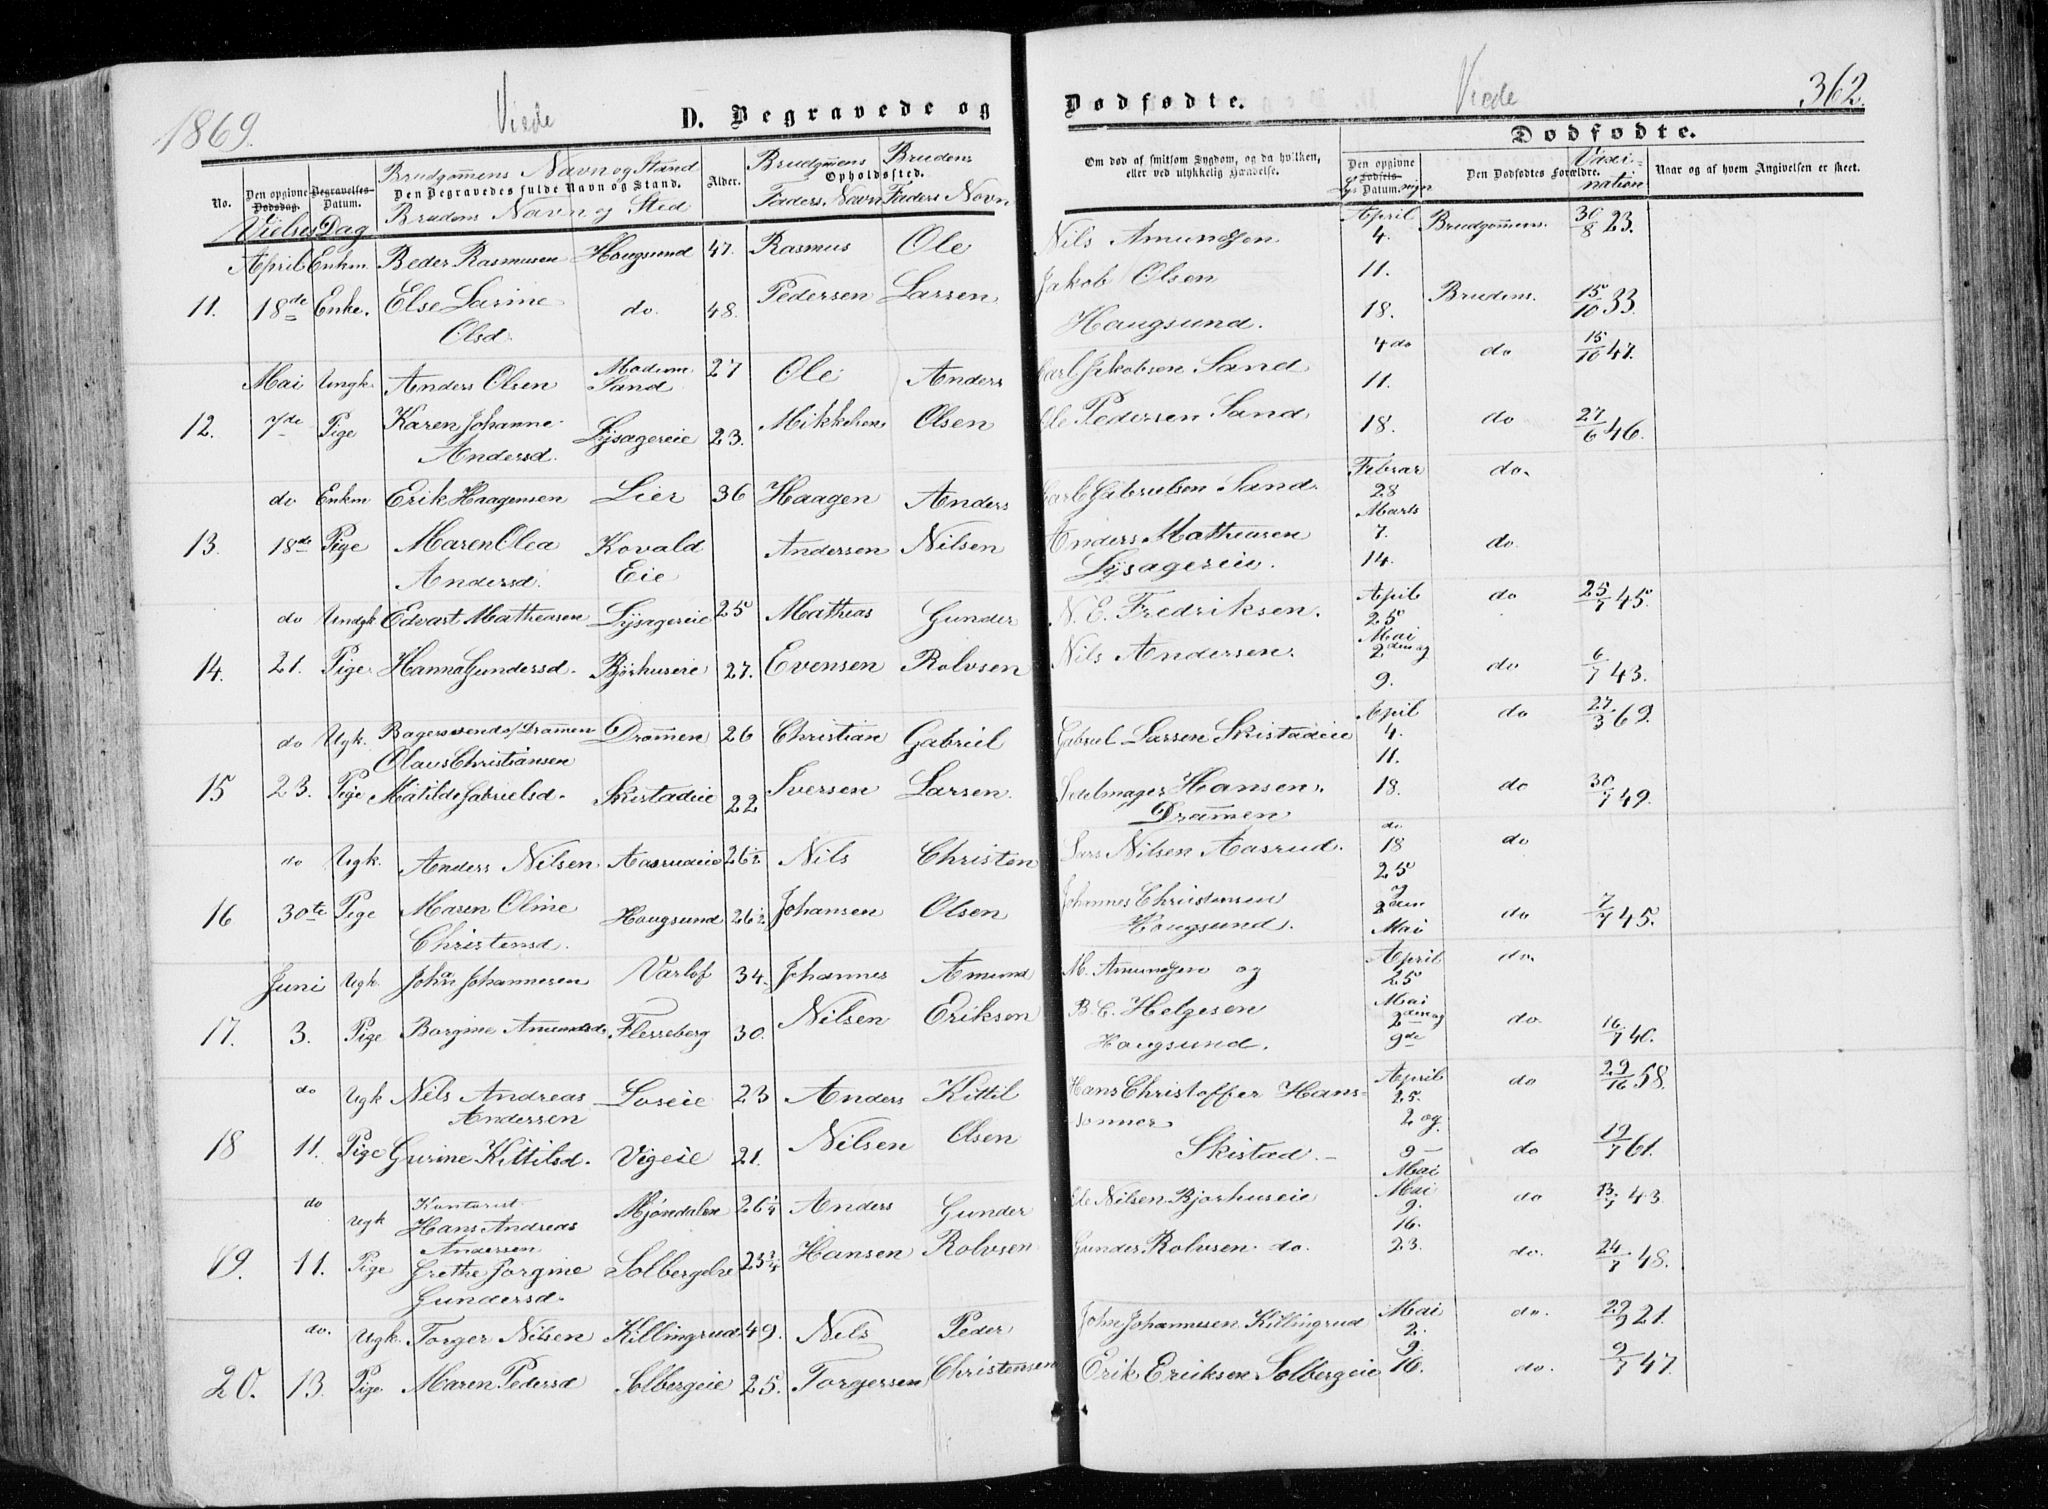 1869. Viede D. Begravede og Dødfødte. Viede 362.
No. Den opgivne Dødsdag. Begravelses-Datum. Den Begravedes fulde Navn og Stand. Alder. Opholdssted. Om død af smitsom Sygdom, og da hvilken, eller ved ulykkelig Hændelse. Dødfødte. Den opgivne Fødsels-Datum. Den Dødfødtes Forældre. Naar og af hvem Angivelsen er skeet.
Vielses Dag Brudgommens Navn og Stand Brudens Navn og Sted Brudgommens Faders Navn Brudens Faders Navn Vaccination
April Enkm. Peder Rasmusen Hougsund 47. Rasmus Ole Nils Amundsen April 4. Brudgommens. 30/8 23.
11. 18de Enke. Else Larine Olsd. do. 48. Pedersen Larsen Jakob Olsen Haugsund. 11. 18. Brudens. 15/10 33.
Mai Ungk. Anders Olsen Sand 27 Ole Anders Carl Jakobsen Sand 4 do 11. do 15/10 47.
12. 7de Pige Karen Johanne Andersd. Lijsagereie 23. Mikkelsen Olsen Ole Pedersen Sand 18. do 27/6 46.
do Enkm Erik Haagensen Lier 36 Haagen Anders Carl Gabrielsen Sand. Febrar 28 do.
13. 18de Pige Maren Olea Andersd. Kovald Eie Andersen Nilsen Anders Matheasen Lijsagereie. Marts 7. 14. do.
do Ungk Edvart Matheasen Lijsagereie 25 Matheas Gunder N. E. Fredriksen. April 25 do 25/7 45.
14. 21. Pige Hanna Gundersd. Bjørhuseie 27. Evensen Rolvsen Nils Andersen. Mai 2den og 9. do 6/7 43.
do Ugk. Bagersvend i Drammen Olaus Christiansen Drammen 26 Christian Gabriel Gabriel Larsen Skistadeie April 4. 11. do 27/3 69.
15 23. Pige Matilde Gabrielsd. Skistadeie 22 Iversen Larsen. Sadelmager Hansen. Drammen 18. do 30/7 49.
do Ugk. Anders Nilsen Aasrudeie 26½ Nils Christen Lars Nilsen Aasrud. do 18 25 do
16 30te Pige Maren Oline Christensd. Hougsund 26½ Johansen Olsen Johannes Christensen Hougsund. 2den Mai do 7/7 45.
Juni Ugk. John Johannesen Varlof 34. Johannes Amund M. Amundsen og April 25 do.
17. 3. Pige Borgine Amundsd. Flesseberg 30. Nilsen Eriksen B. C. Helgesen Hougsund. Mai 2den og 9de do. 16/7 40.
do Ugk Nils Andreas Andersen Loseie 23 Anders Kittil Hans Christoffer Hans- April 25. do 29/16 58.
18 11. Pige Gurine Kittilsd. Vigeie 21. Nilsen Olsen sønner Skistad. 2 og 9 Mai do 19/7 61.
do Ugk Kontorist Hans Andreas Andersen Mjøndalen 26¼ Anders Gunder Ole Nilsen Bjørhuseie Mai 9. 16. do 13/7 43.
19. 11. Pige Grethe Jorgine Gundersd. Solbergelve 23¾ Hansen Rolvsen Gunder Rolvsen. do. 23. do. 24/7 48.
do. Ugk. Torger Nilsen Killingrud 49. Nels Peder John Johannesen Killingrud Mai 2. do. 29/9 21.
20. 13. Pige Maren Pedersd Solbergeie 25. Torgersen Christensen Erik Eriksen Solbergeie 9. 16. do. 9/7 47.